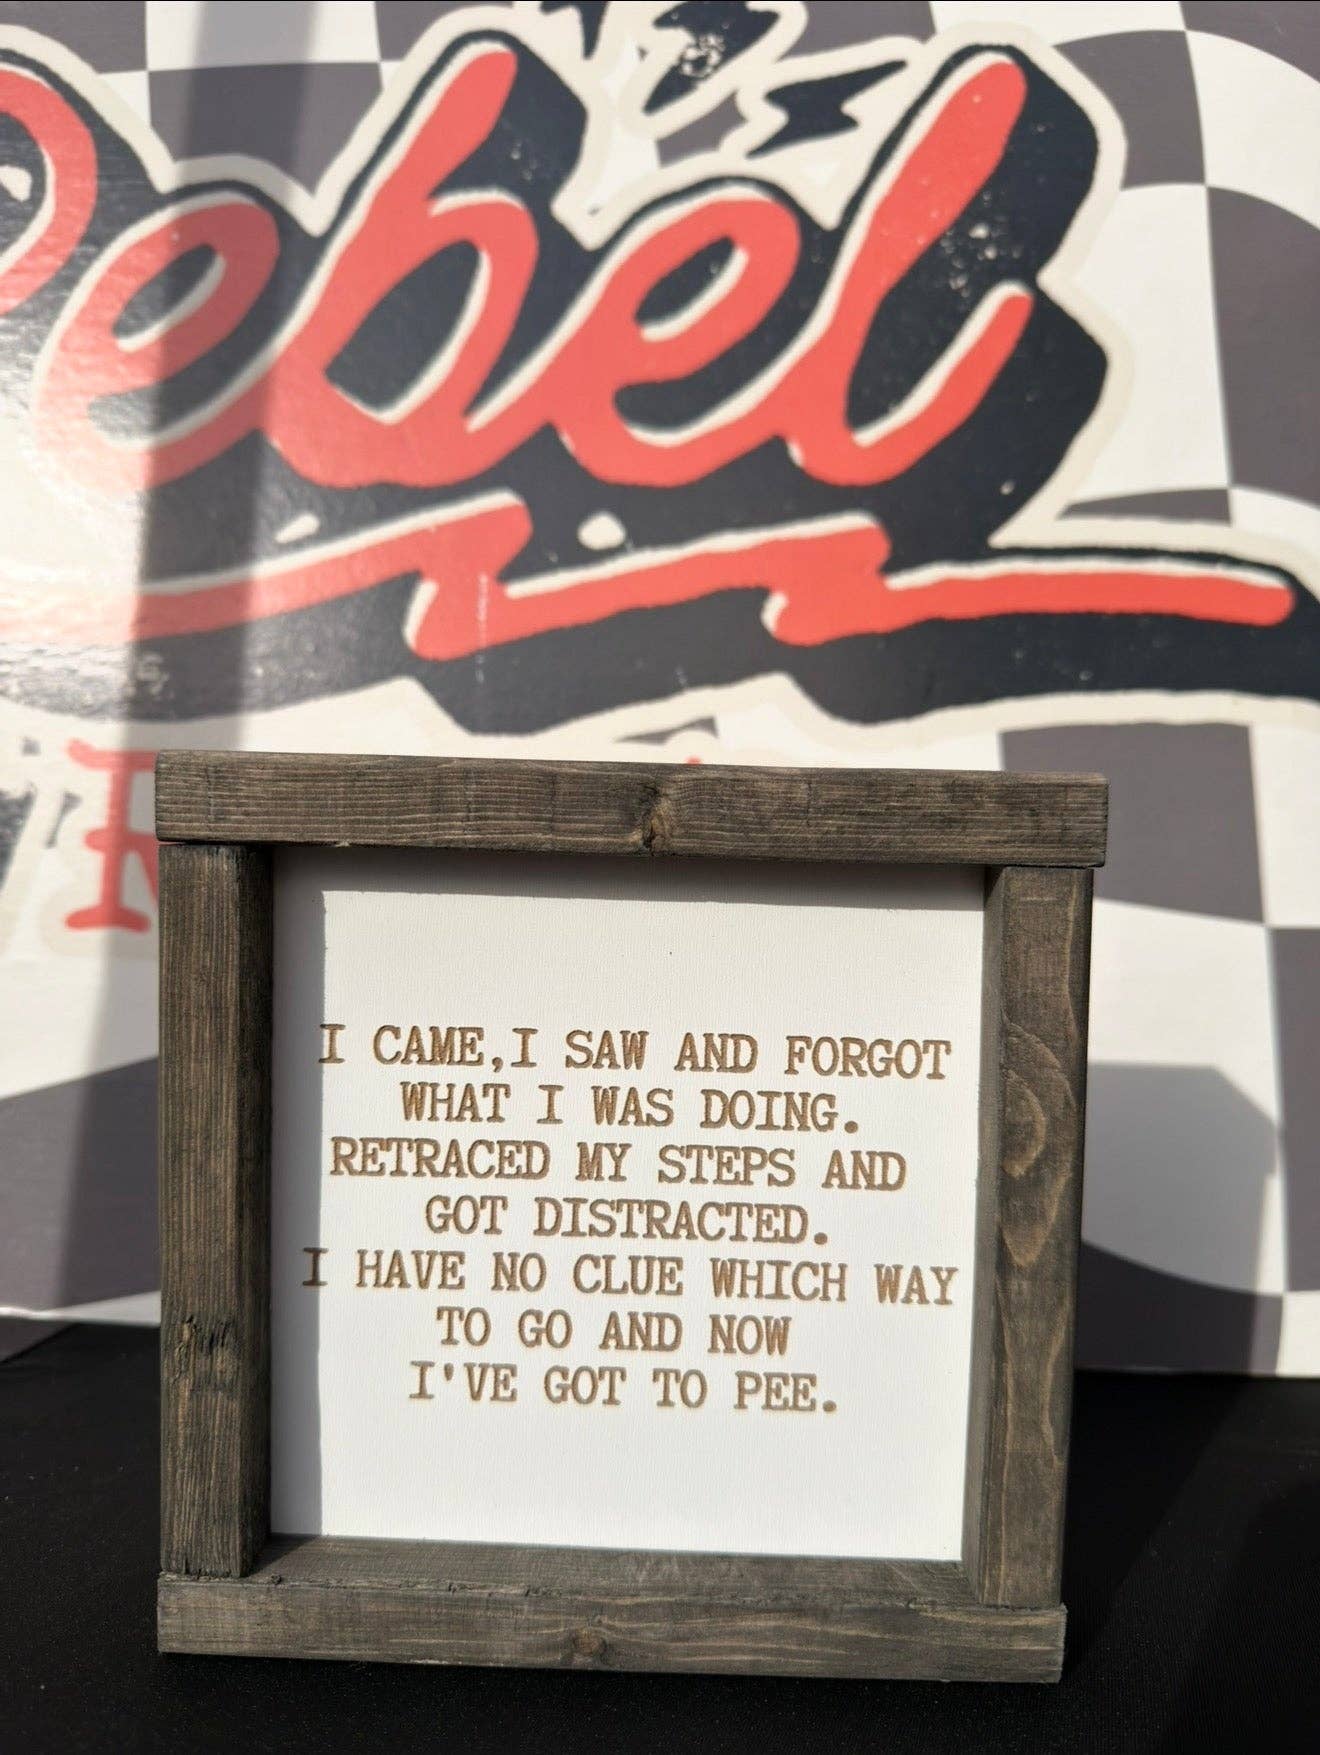 Rebel
I CAME,I SAW AND FORGOT
WHAT I WAS DOING.
RETRACED MY STEPS AND
GOT DISTRACTED.
I HAVE NO CLUE WHICH WAY
TO GO AND NOW
I'VE GOT TO PEE.